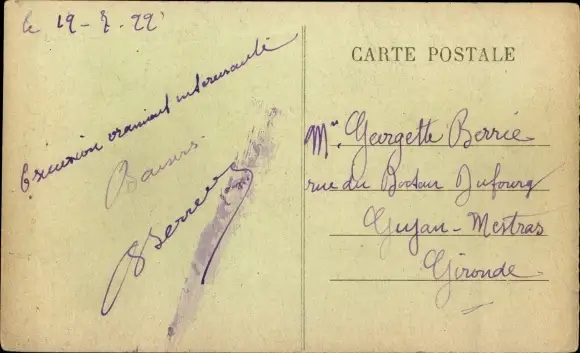 le 19-7-22
Excursion vraiment intéressante
Baisers
Berrie
CARTE POSTALE
Mlle Georgette Berrie
rue du Docteur Dufourg
Gujan-Mestras
Gironde